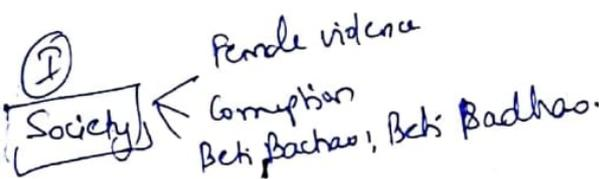 I
Society
Female vidence
Corruption
Beti Bachao, Beti Badhao.